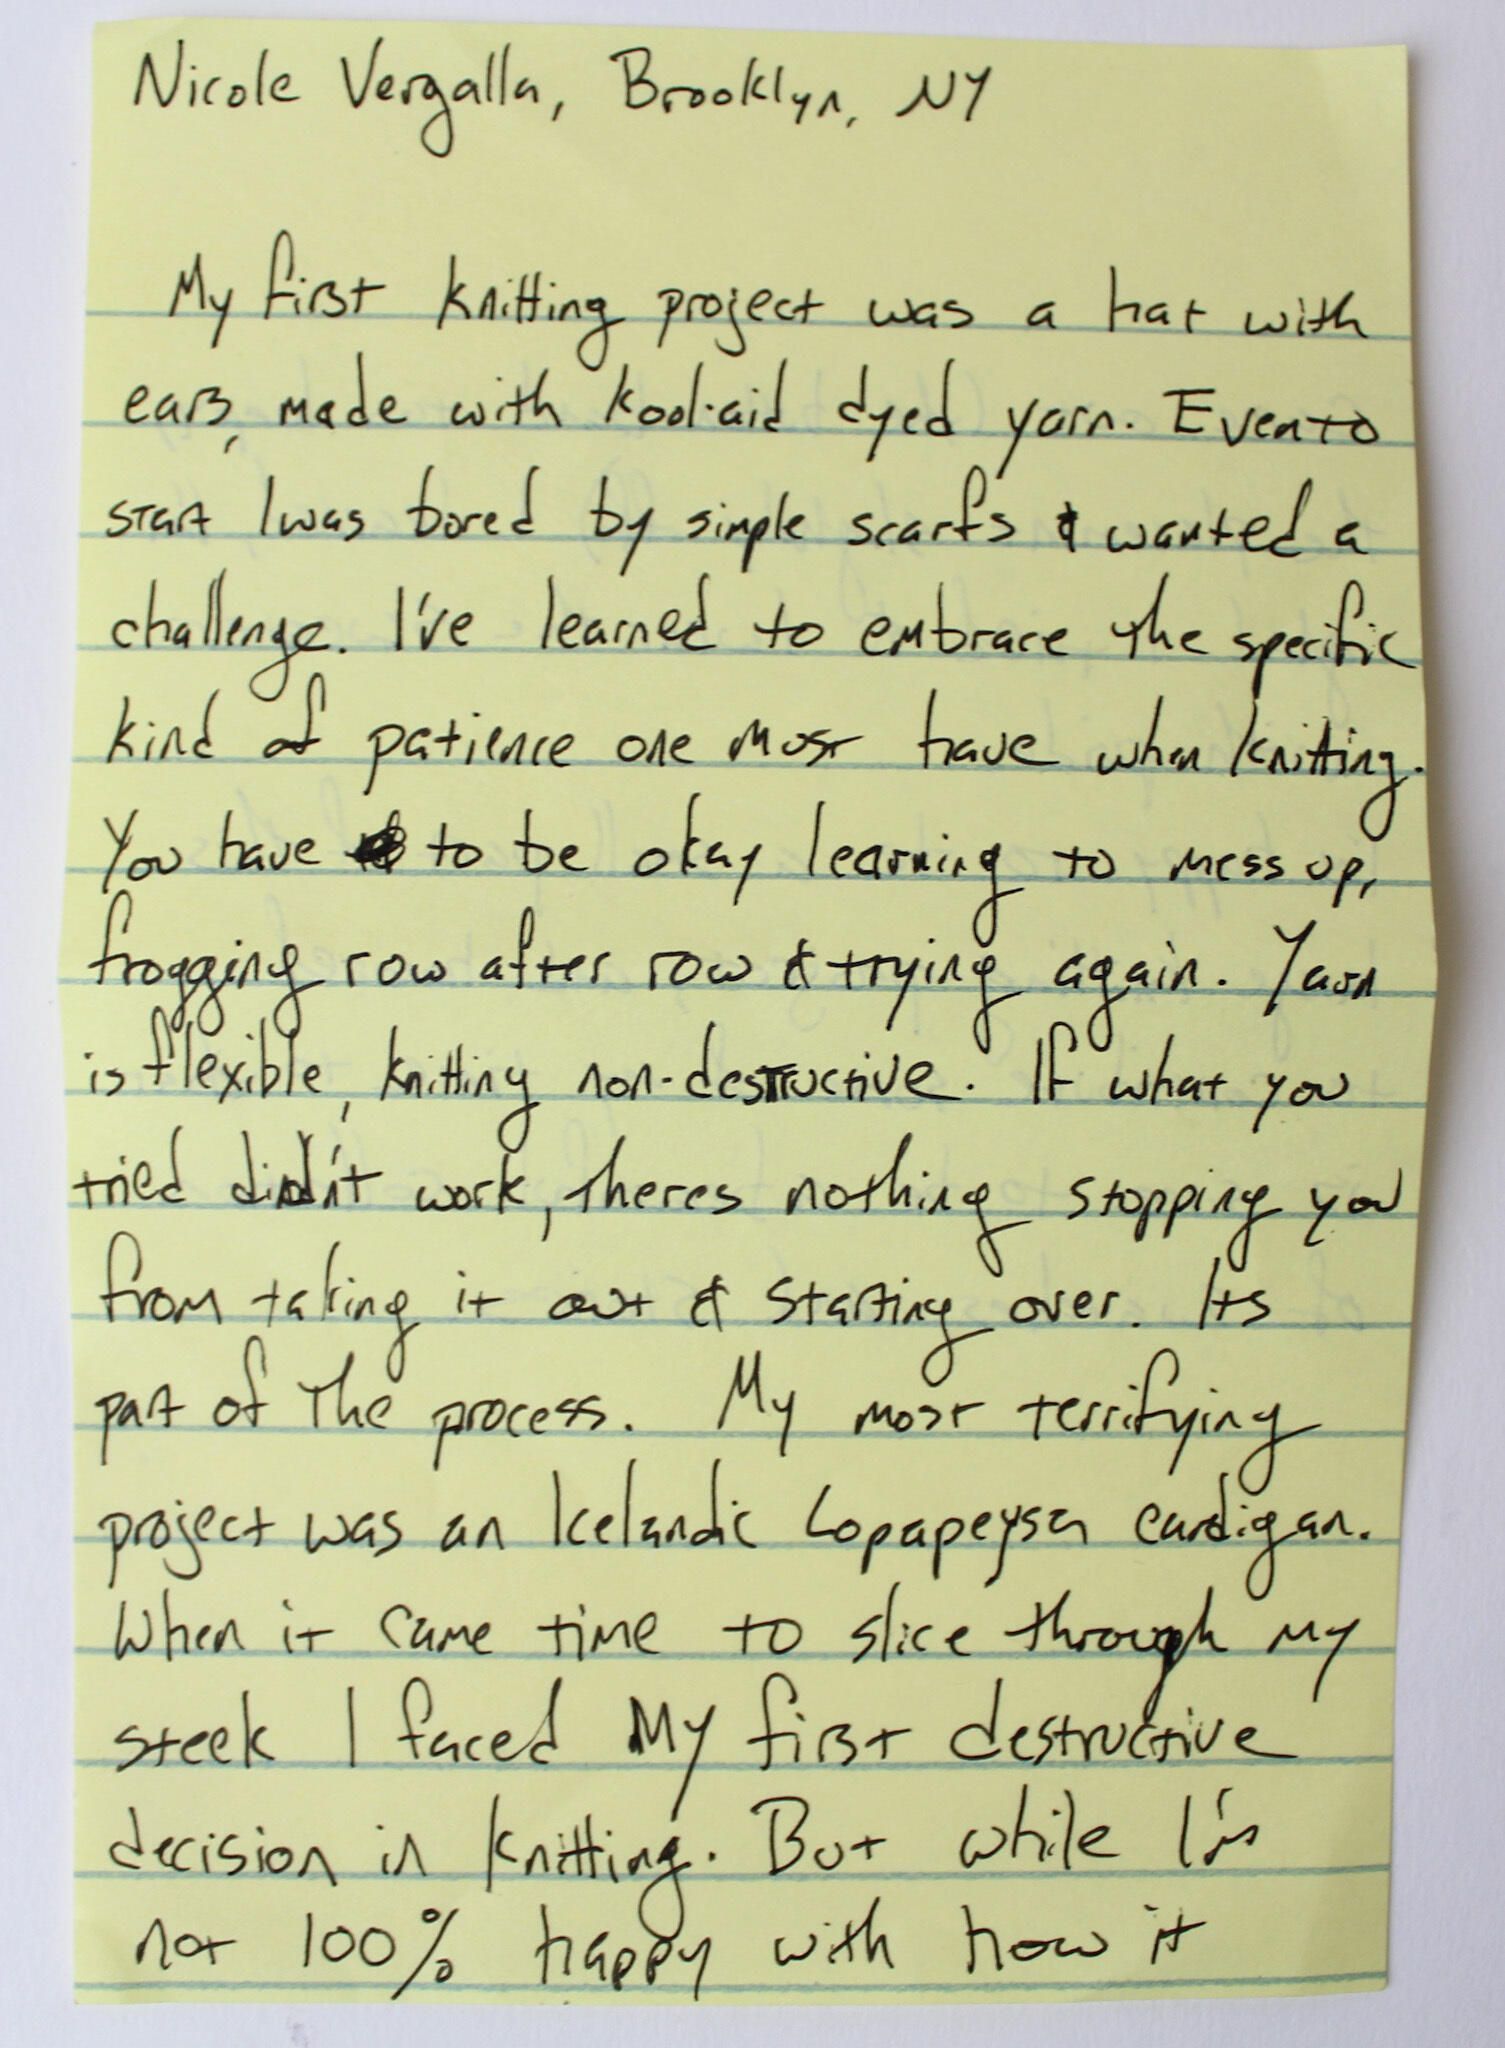 Nicole Vergalla, Brooklyn, NY
My first knitting project was a hat with
ears, made with kool-aid dyed yarn. Even to
start I was bored by simple scarfs & wanted a
challenge. I've learned to embrace the specific
kind of patience one must have when knitting.
You have to be okay learning to mess up,
frogging row after row & trying again. Yarn
is flexible, knitting non-destructive. If what you
tried didn't work, theres nothing stopping you
from taking it out & starting over. Its
part of the process. My most terrifying
project was an Icelandic Lopapeysa cardigan.
When it came time to slice through my
steek I faced my first destructive
decision in knitting. But while I'm
not 100% happy with how it